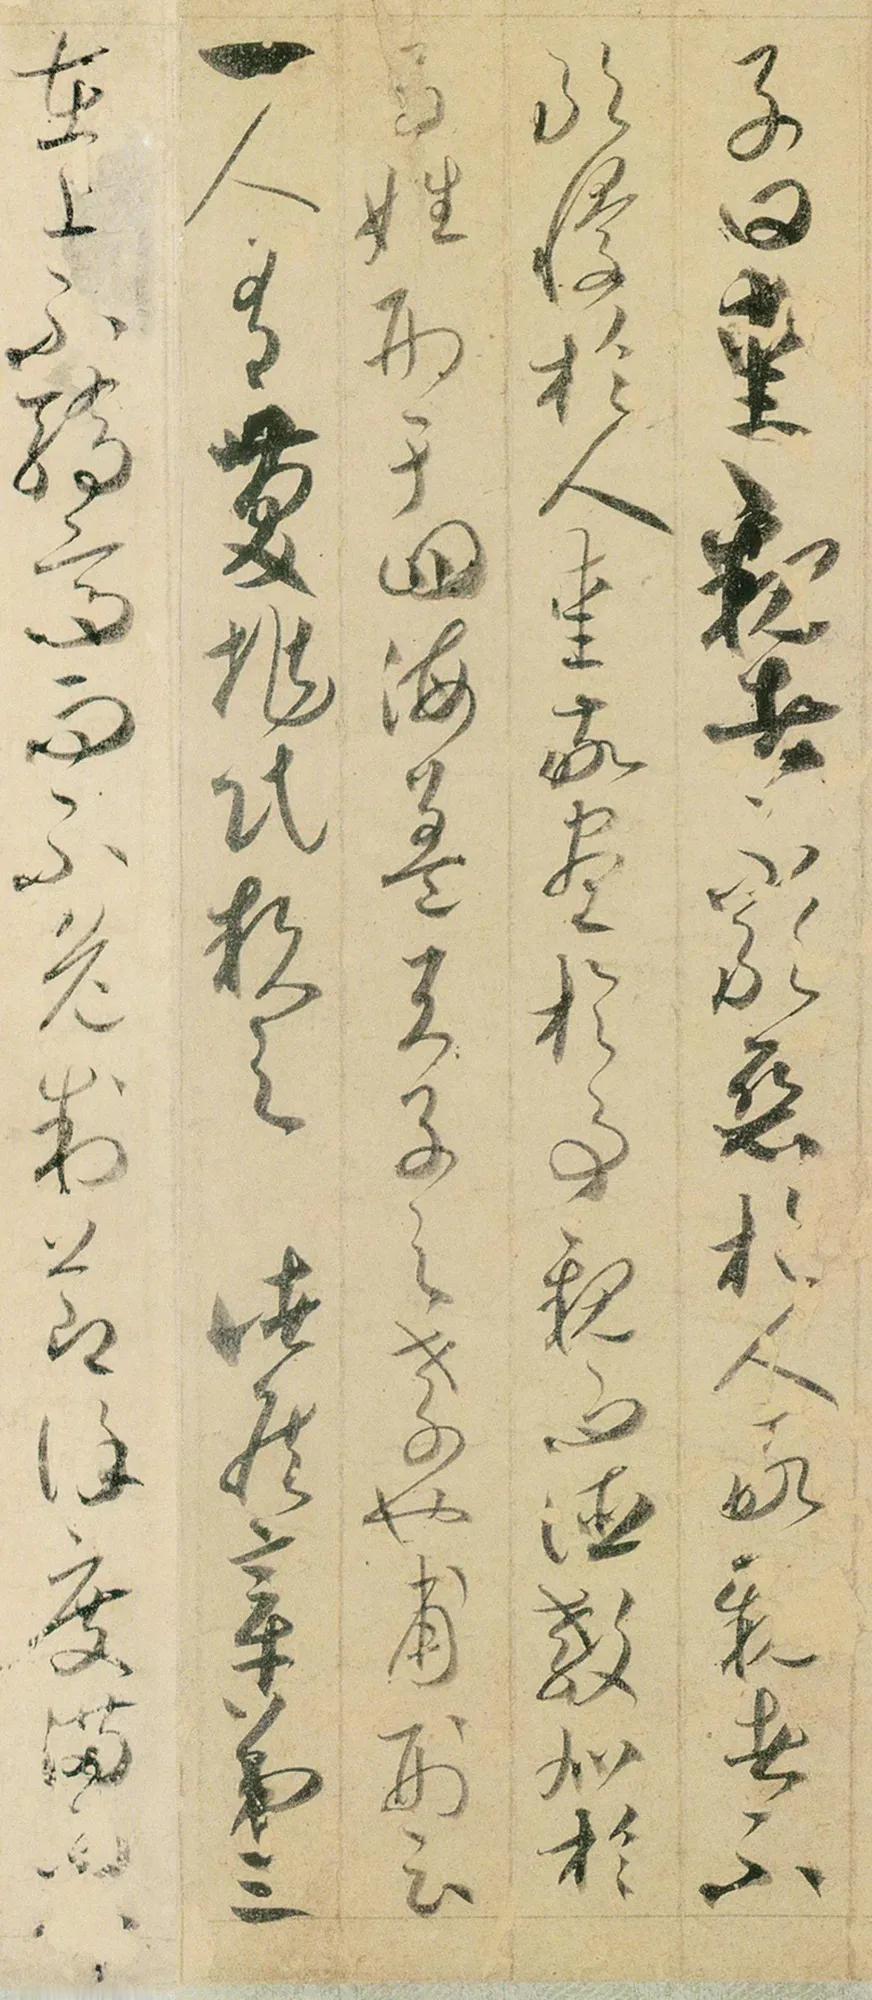 子曰愛親者不敢惡於人敬親者不
敢慢於人愛敬盡於事親而德教加於
百姓刑于四海蓋天子之孝也甫刑云
一人有慶兆民賴之 諸侯章第三
在上不驕高而不危制節謹度滿而不